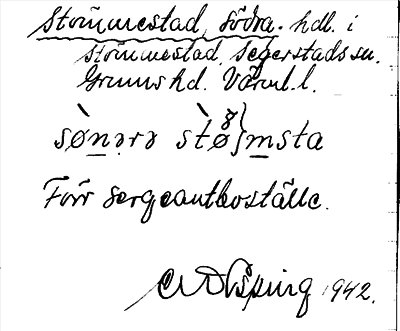 Stommestad, södra. hdl. i
Stommestad, Segerstads sn.
Grums hd. Värml. l.
sø̀nərə stø̀msta
Förr sergeantboställe.
1942.